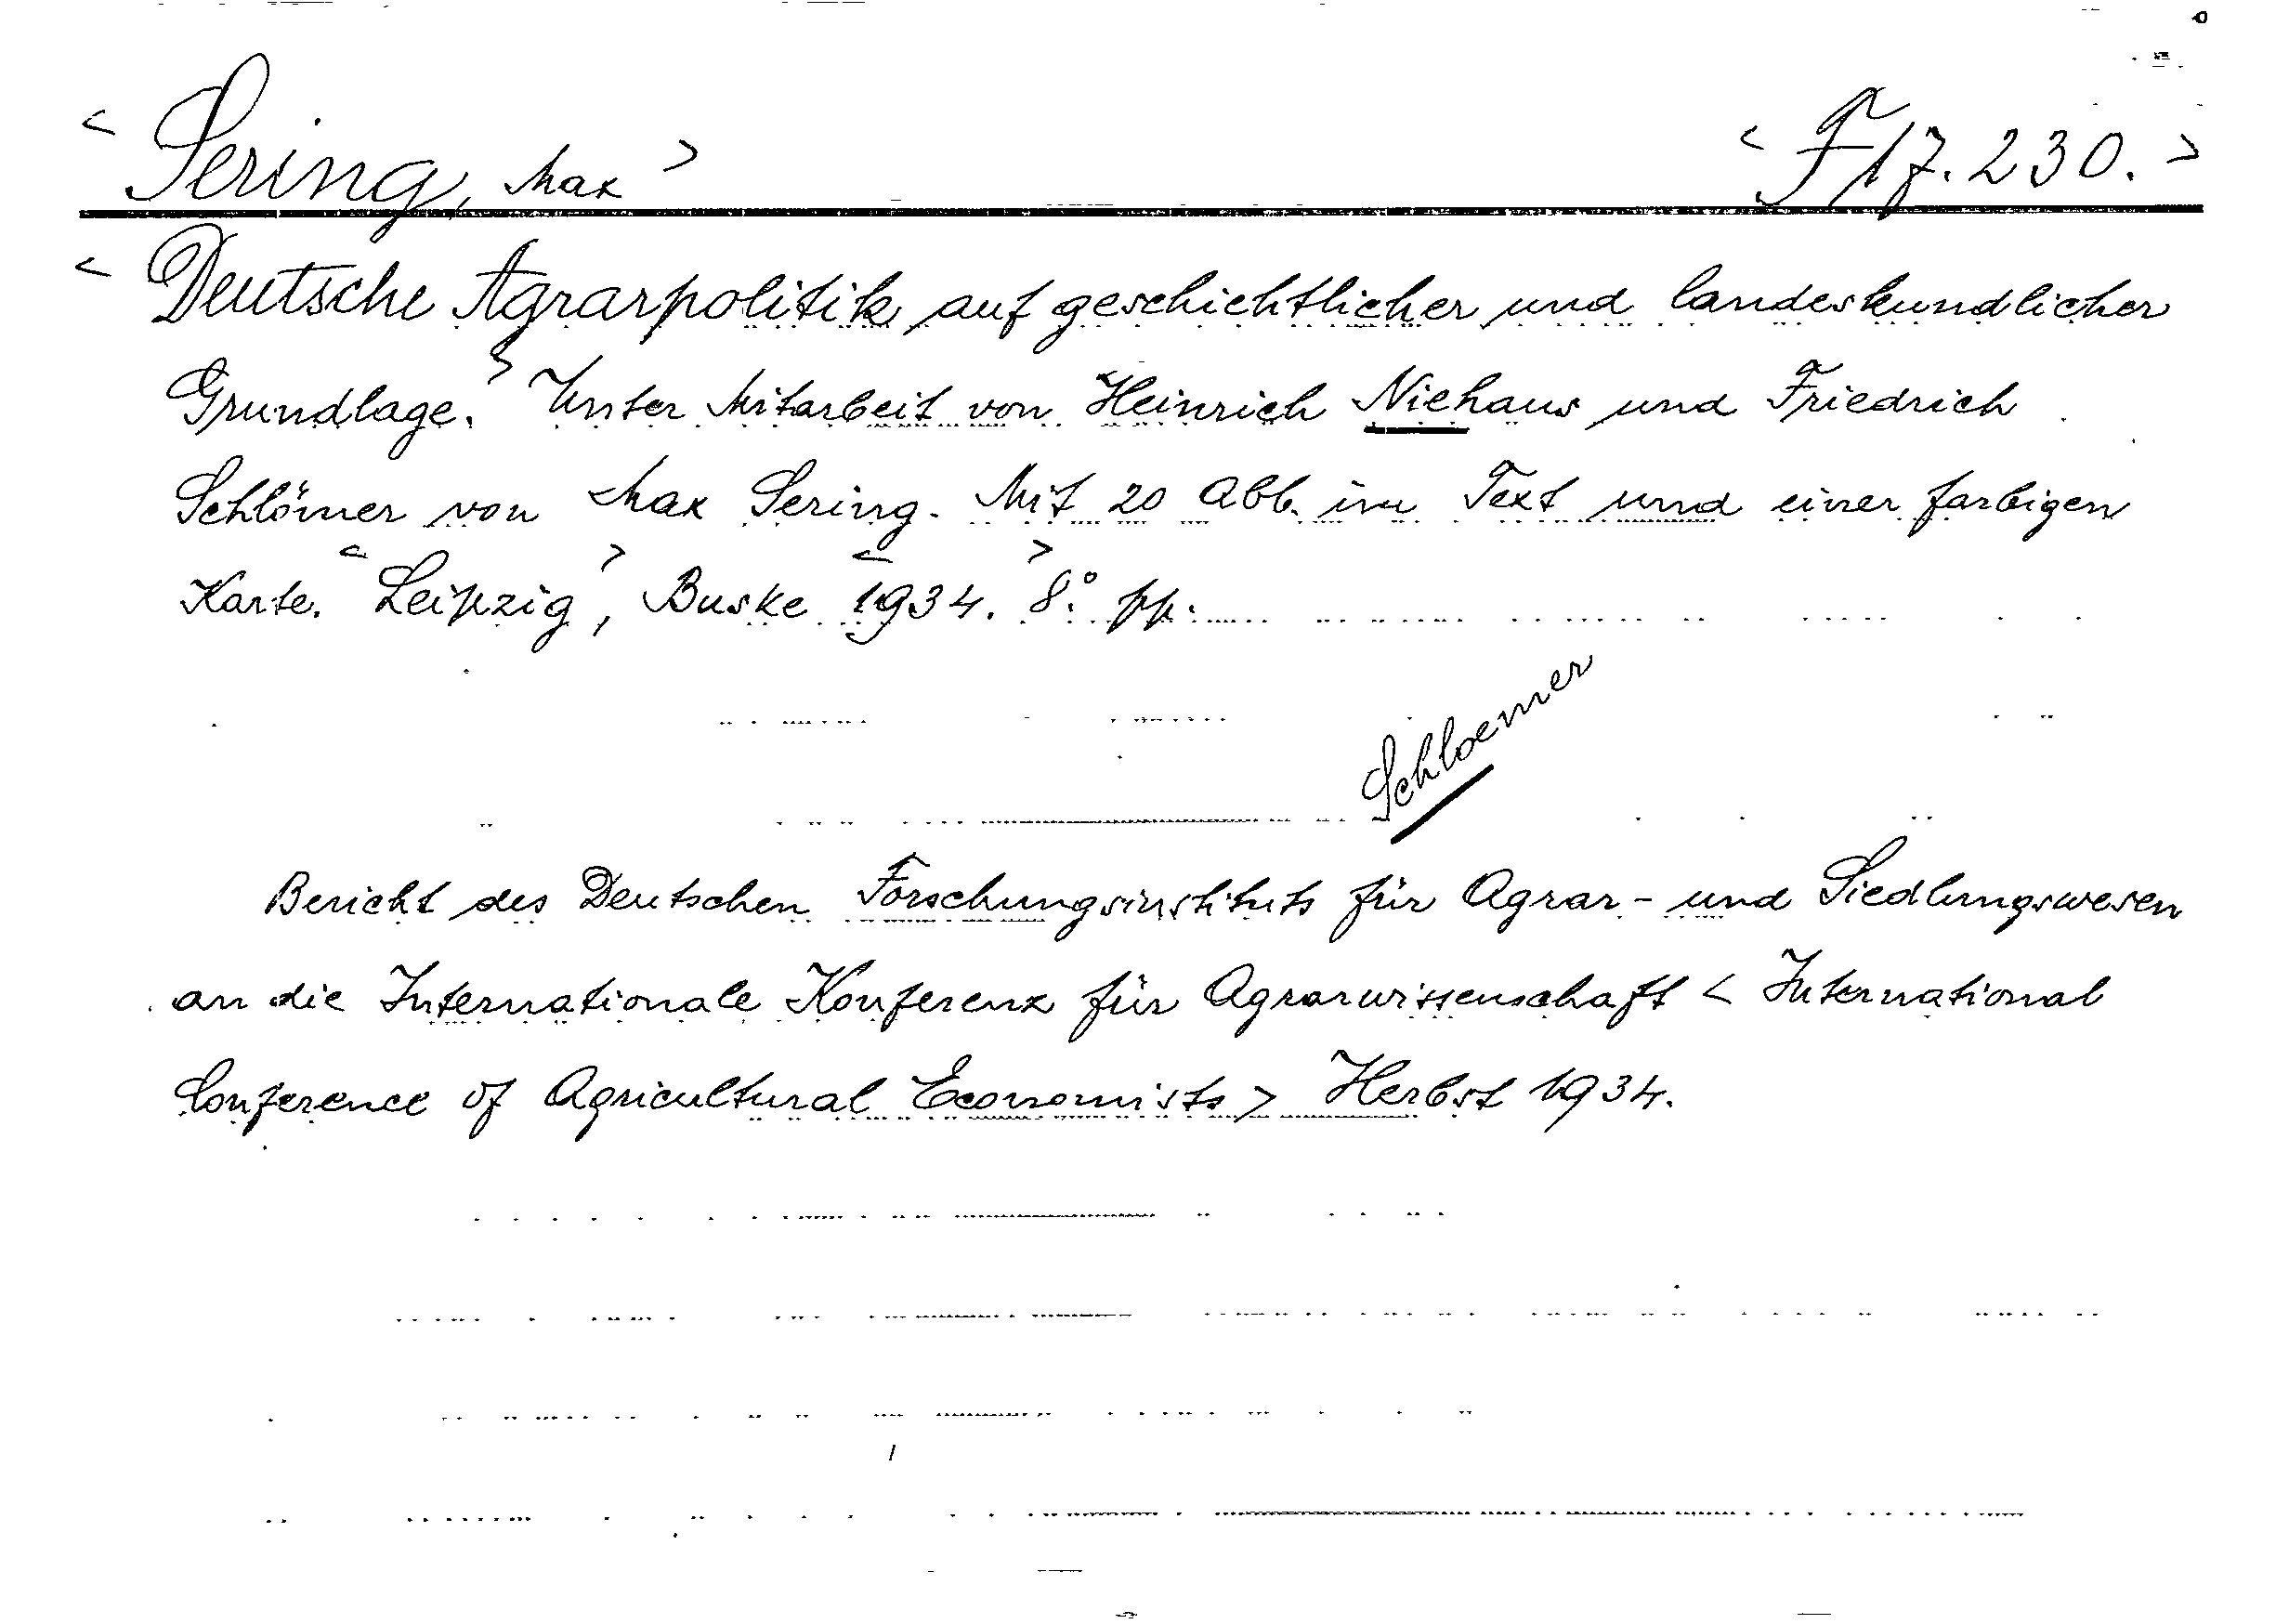 < Sering, Max > < F 17.230. >
< Deutsche Agrarpolitik auf geschichtlicher und landeskundlicher
Grundlage. > Unter Mitarbeit von Heinrich Niehaus und Friedrich
Schlömer von Max Sering. Mit 20 Abb. im Text und einer farbigen
Karte. < Leipzig >, Buske < 1934. > 8°. pp.
Schloemer
Bericht des Deutschen Forschungsinstituts für Agrar- und Siedlungswesen
an die Internationale Konferenz für Agrarwissenschaft < International
Conference of Agricultural Economists > Herbst 1934.